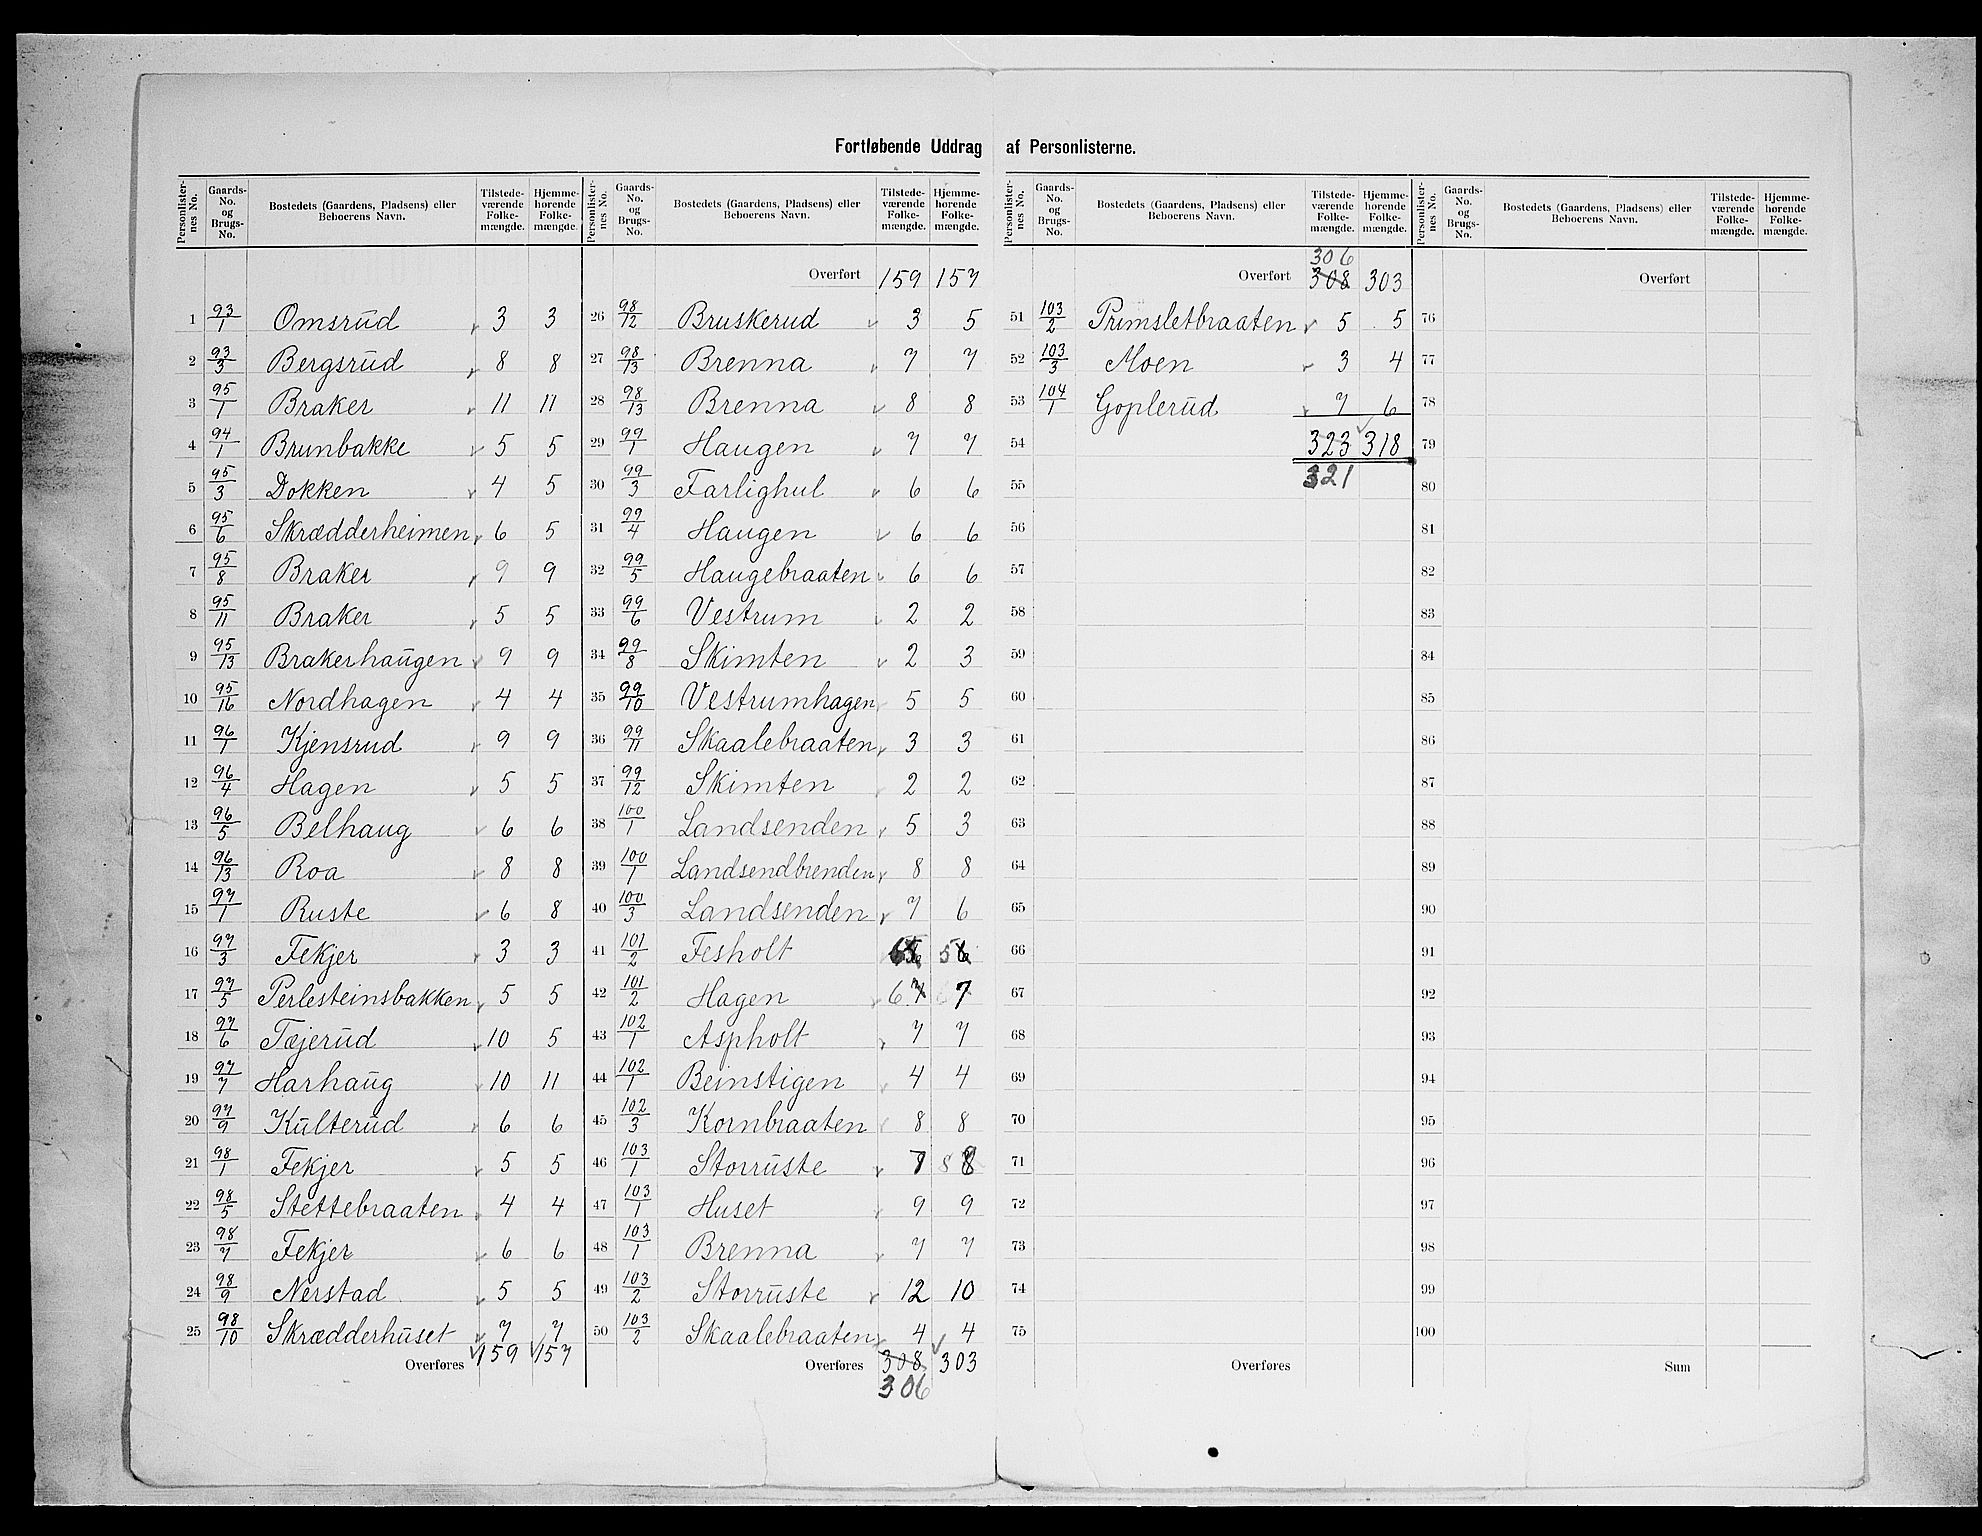 Fortløbende Uddrag af Personlisterne.
Personlisternes No. | Gaards-No. og Brugs-No. | Bostedets (Gaardens, Pladsens) eller Beboerens Navn. | Tilstedeværende Folkemængde. | Hjemmehørende Folkemængde.
1 93/1 Omsrud 3 3
2 93/3 Bergsrud 8 8
3 95/1 Braker 11 11
4 94/1 Brunbakke 5 5
5 95/3 Dokken 4 5
6 95/6 Skrædderheimen 6 5
7 95/8 Braker 9 9
8 95/11 Braker 5 5
9 95/13 Brakerhaugen 9 9
10 95/16 Nordhagen 4 4
11 96/1 Kjensrud 9 9
12 96/4 Hagen 5 5
13 96/5 Belhaug 6 6
14 96/13 Roa 8 8
15 97/1 Ruste 6 8
16 97/3 Fekjer 3 3
17 97/5 Perlesteinsbakken 5 5
18 97/6 Tæjerud 10 5
19 97/7 Harhaug 10 11
20 97/9 Kulterud 6 6
21 98/1 Fekjer 5 5
22 98/5 Stettebraaten 4 4
23 98/7 Fekjer 6 6
24 98/9 Nerstad 5 5
25 98/10 Skrædderhuset 7 7
Overføres 159 157
Personlisternes No. | Gaards-No. og Brugs-No. | Bostedets (Gaardens, Pladsens) eller Beboerens Navn. | Tilstedeværende Folkemængde. | Hjemmehørende Folkemængde.
Overført 159 157
26 98/12 Bruskerud 3 5
27 98/13 Brenna 7 7
28 98/13 Brenna 8 8
29 99/1 Haugen 7 7
30 99/3 Farlighul 6 6
31 99/4 Haugen 6 6
32 99/5 Haugebraaten 6 6
33 99/6 Vestrum 2 2
34 99/8 Skimten 2 3
35 99/10 Vestrumhagen 5 5
36 99/11 Skaalebraaten 3 3
37 99/12 Skimten 2 2
38 100/1 Landsenden 5 3
39 100/1 Landsendbrenden 8 8
40 100/3 Landsenden 7 6
41 101/2 Fesholt 5 6
42 101/2 Hagen 6 7 7
43 102/1 Aspholt 7 7
44 102/1 Beinstigen 4 4
45 102/3 Kornbraaten 8 8
46 103/1 Storruste 7 8 8
47 103/1 Huset 9 9
48 103/1 Brenna 7 7
49 103/2 Storruste 12 10
50 103/2 Skaalebraaten 4 4
Overføres 308 303
306
Personlisternes No. | Gaards-No. og Brugs-No. | Bostedets (Gaardens, Pladsens) eller Beboerens Navn. | Tilstedeværende Folkemængde. | Hjemmehørende Folkemængde.
306
Overført 308 303
51 103/2 Primsletbraaten 5 5
52 103/3 Moen 3 4
53 104/1 Goplerud 7 6
54 323 318
55 321
56
57
58
59
60
61
62
63
64
65
66
67
68
69
70
71
72
73
74
75
Overføres
Personlisternes No. | Gaards-No. og Brugs-No. | Bostedets (Gaardens, Pladsens) eller Beboerens Navn. | Tilstedeværende Folkemængde. | Hjemmehørende Folkemængde.
Overført
76
77
78
79
80
81
82
83
84
85
86
87
88
89
90
91
92
93
94
95
96
97
98
99
100
Sum